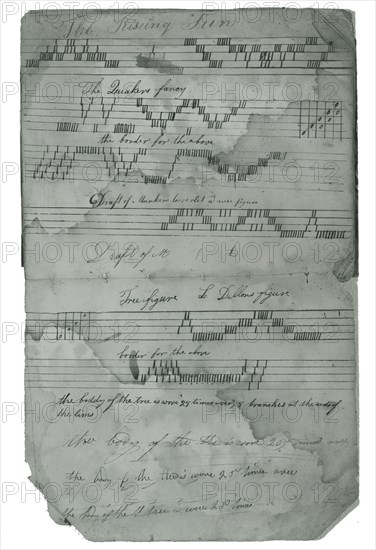 The Rising Sun
The Quakers fancy
the border for the above
Draft of
figure
Draft of
Tree figure L Dillons figure
border for the above
the boddy of the tree is wove 28 times over, & branches at the end of
the lines
the body of the tree is wove 28 times over
the body of the tree is wove 28 times over
the body of the tree is wove 28 times